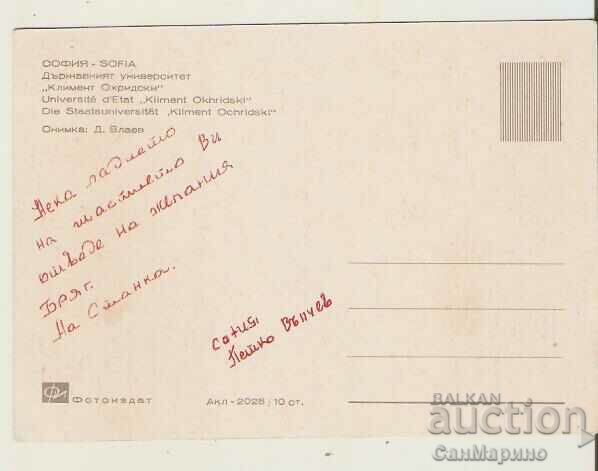 СОФИЯ - SOFIA
Държавният университет
„Климент Охридски"
Université d'Etat „Kliment Okhridski"
Die Staatsuniversität „Kliment Ochridski"
Снимка: Д. Влаев
Нека ладието
на щастието Ви
отведе на желания
Бряг.
На Станка.
Петко Вълчев
Фотоиздат
Акл - 2028 / 10 ст.
BALKAN
auction
СанМарино